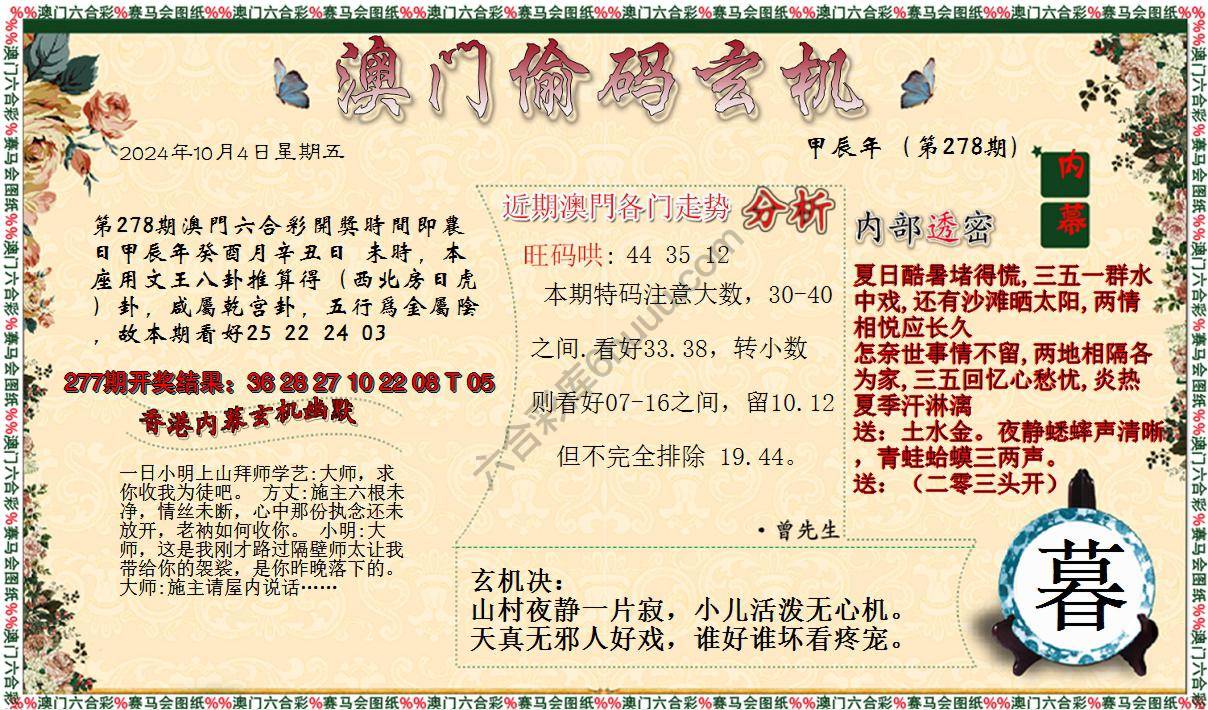 %%澳门六合彩%赛马会图纸%%澳门六合彩%赛马会图纸%%澳门六合彩%赛马会图纸%%澳门六合彩%赛马会图纸%%澳门六合彩%赛马会图纸%%澳门六合彩%赛马会图纸%%
澳门偷码玄机
2024年10月4日星期五
甲辰年（第278期）
内
幕
第278期澳門六合彩開獎時間即農
日甲辰年癸酉月辛丑日 未時，本
座用文王八卦推算得（西北房日虎
）卦，咸屬乾宫卦，五行爲金屬陰
，故本期看好25 22 24 03
277期开奖结果：36 28 27 10 22 08 T 05
香港内幕玄机幽默
一日小明上山拜师学艺:大师，求
你收我为徒吧。 方丈:施主六根未
净，情丝未断，心中那份执念还未
放开，老衲如何收你。 小明:大
师，这是我刚才路过隔壁师太让我
带给你的袈裟，是你昨晚落下的。
大师:施主请屋内说话……
近期澳門各门走势 分析
旺码哄: 44 35 12
本期特码注意大数，30-40
之间.看好33.38，转小数
则看好07-16之间，留10.12
但不完全排除 19.44。
·曾先生
内部透密
夏日酷暑堵得慌,三五一群水
中戏,还有沙滩晒太阳,两情
相悦应长久
怎奈世事情不留,两地相隔各
为家,三五回忆心愁忧,炎热
夏季汗淋漓
送：土水金。夜静蟋蟀声清晰
，青蛙蛤蟆三两声。
送：（二零三头开）
玄机决：
山村夜静一片寂，小儿活泼无心机。
天真无邪人好戏，谁好谁坏看疼宠。
暮